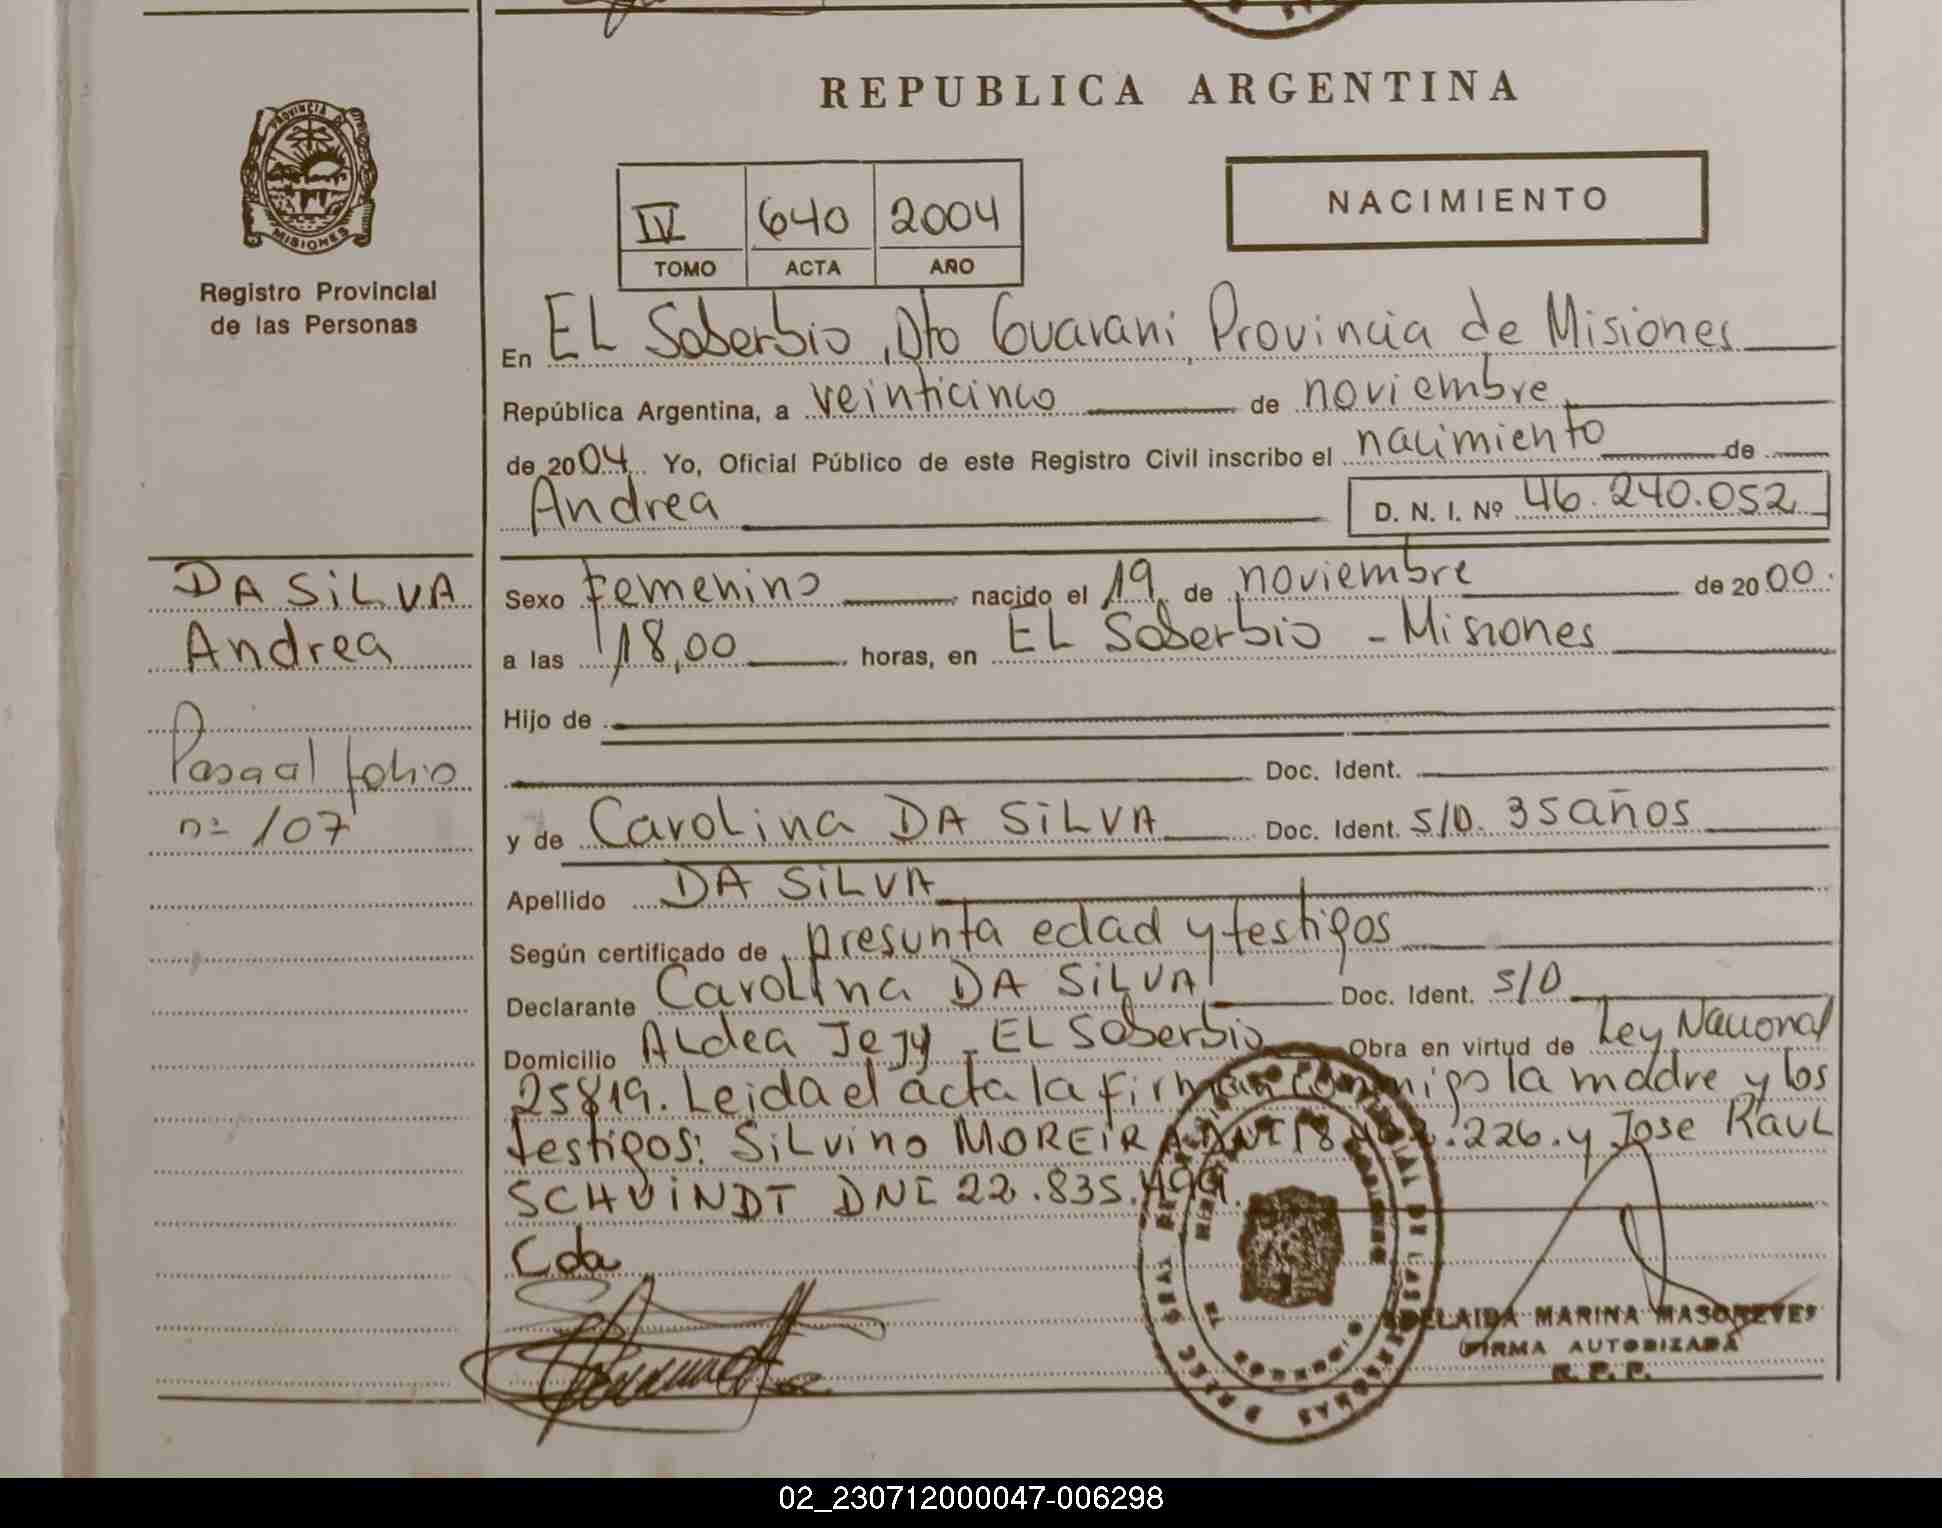 REPUBLICA ARGENTINA
PROVINCIA DE
MISIONES
Registro Provincial
de las Personas
IV 640 2004
TOMO ACTA AÑO
NACIMIENTO
En EL Soberbio, Dto Guarani, Provincia de Misiones
República Argentina, a veinticinco de noviembre
de 2004. Yo, Oficial Público de este Registro Civil inscribo el nacimiento de
Andrea D. N. I. Nº 46.240.052
DA SiLVA
Andrea
Pasa al folio
nº 107
Sexo femenino nacido el 19 de noviembre de 2000
a las 18,00 horas, en EL Soberbio - Misiones
Hijo de
Doc. Ident.
y de Carolina DA SiLVA Doc. Ident. S/D. 35 años
Apellido DA SiLVA
Según certificado de presunta edad y testigos
Declarante Carolina DA SiLVA Doc. Ident. S/D
Domicilio ALdea Jejy - EL Soberbio Obra en virtud de Ley Nacional
25819. Leida el acta la firman conmigo la madre y los
testigos: SiLvino MOREIRA DNI 18. .226. y Jose RauL
SCHViNDT DNI 22.835.499.
Cda
MARINA
FIRMA AUTORIZADA
R. P. P.
02_230712000047-006298